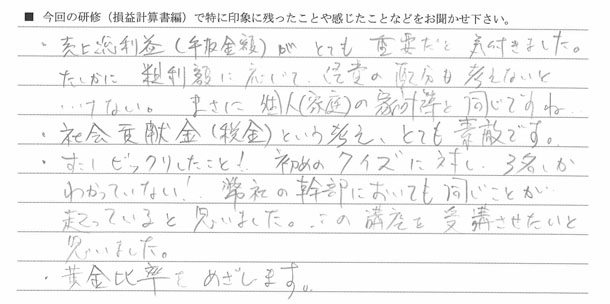 ■ 今回の研修（損益計算書編）で特に印象に残ったことや感じたことなどをお聞かせ下さい。
・売上総利益（手取金額）が とても 重要だと 気付きました。
たしかに 粗利額に応じて、経費の配分も考えないと
いけない。 まさに 個人（家庭）の家計簿と同じですね…
・社会貢献金（税金）という考え、とても 素敵です。
・すこしビックリしたこと！ 初めのクイズに対し、3名しか
わかっていない！ 弊社の幹部においても同じことが
起っていると思いました。この講座を受講させたいと
思いました。
・黄金比率をめざします。